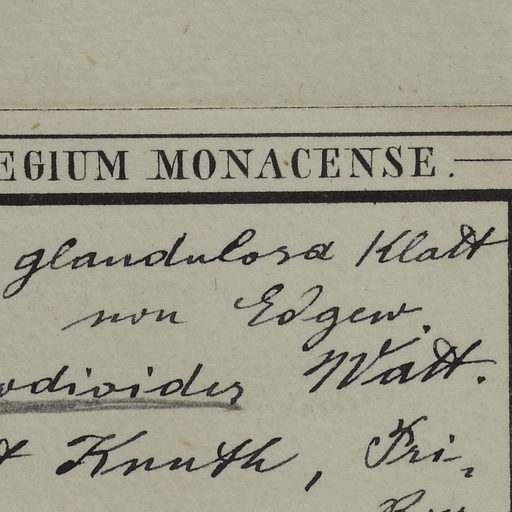 EGIUM MONACENSE.
glandulosa Klatt
non Edgew.
odioides Watt.
Knuth, Pri-